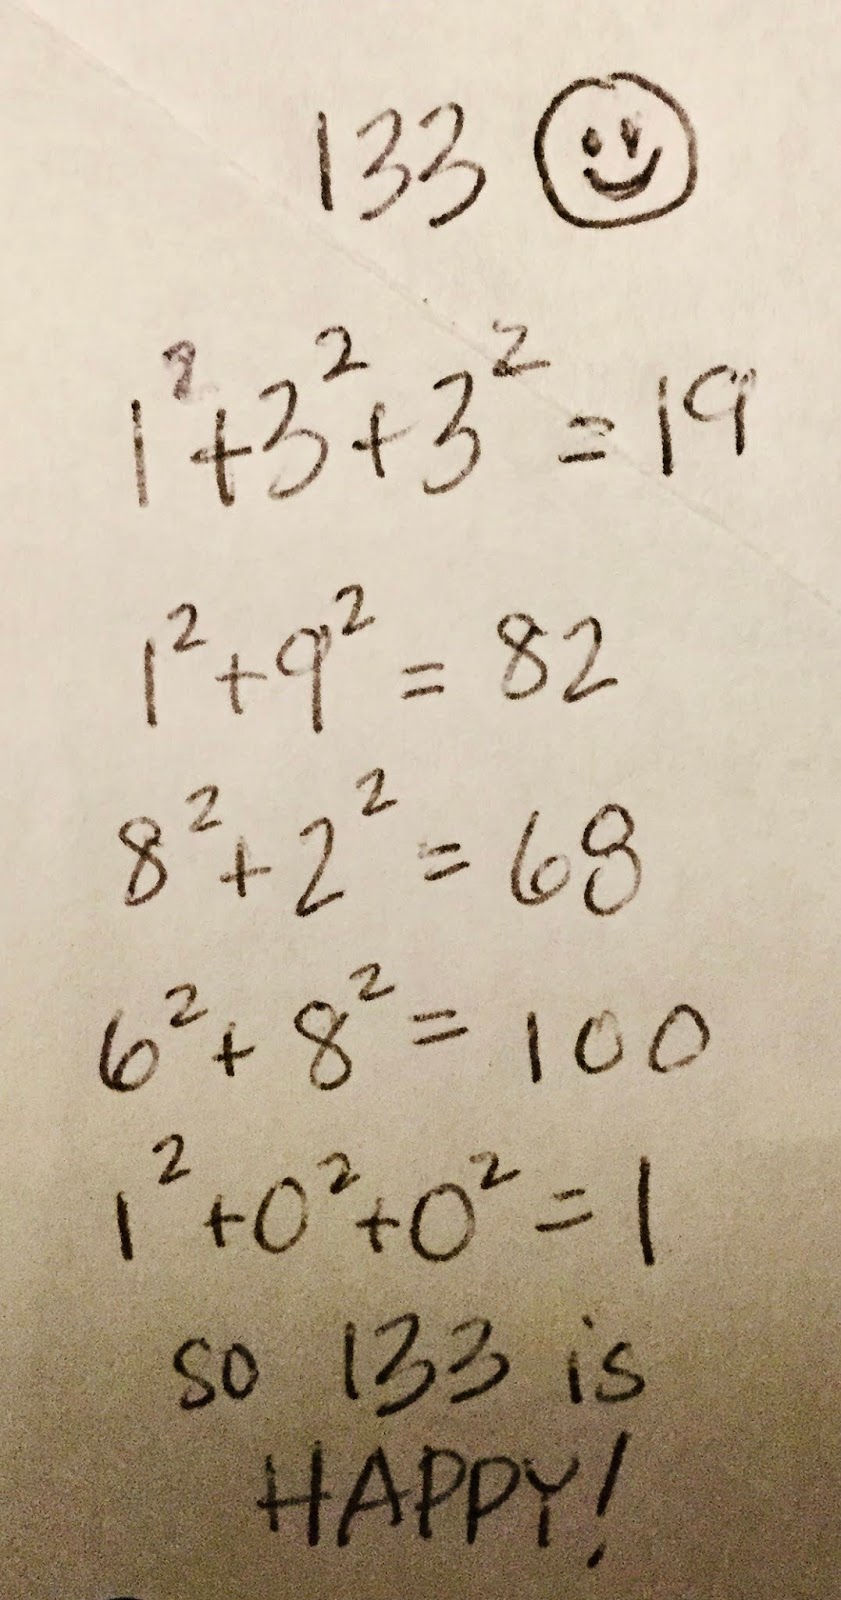 133
1²+3²+3² = 19
1²+9² = 82
8²+2² = 68
6²+8² = 100
1²+0²+0² = 1
so 133 is
HAPPY!